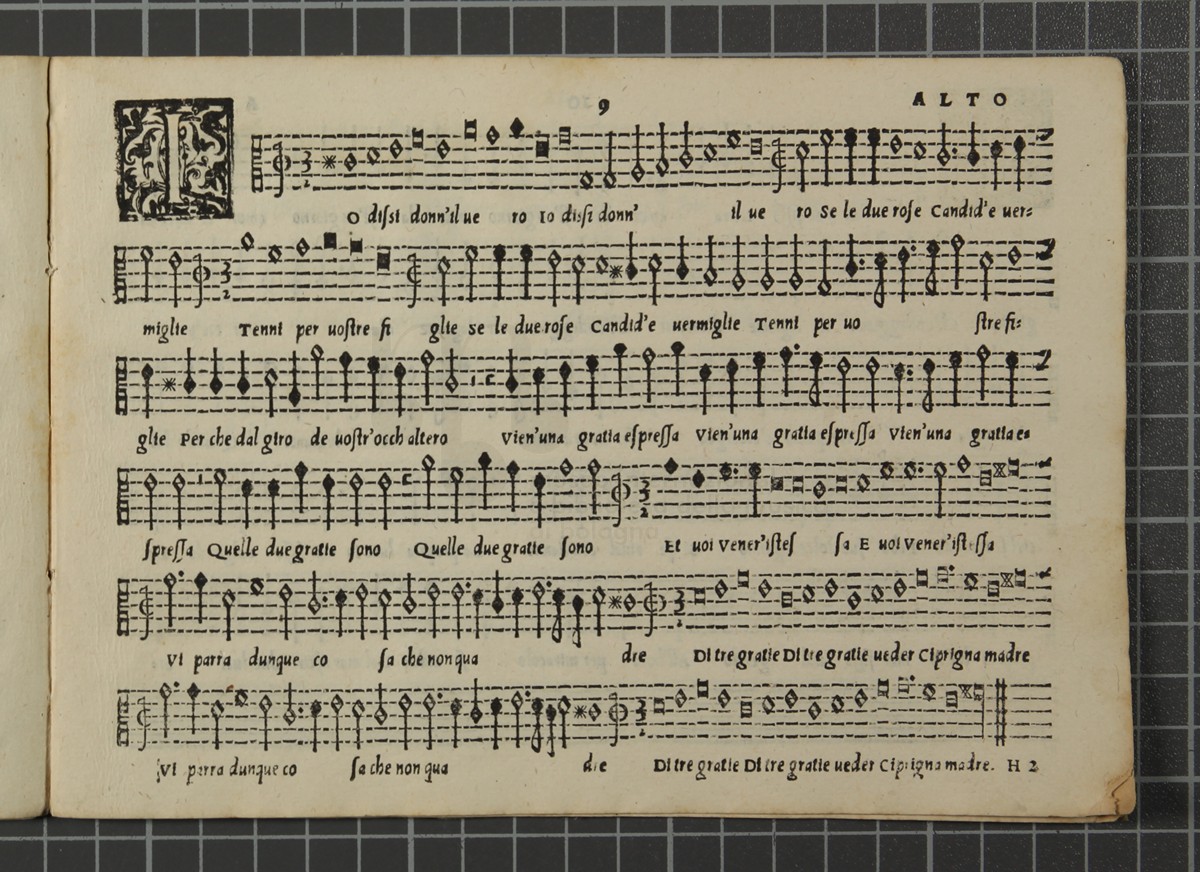 9
ALTO
IO diſsi donn'il ue ro Io diſsi donn' il ue ro Se le due roſe Candid'e uer=
miglie Tenni per uoſtre fi glie Se le due roſe Candid'e uermiglie Tenni per uo ſtre fi=
glie Per che dal giro de uoſtr'occh altero Vien'una gratia eſpreſſa Vien'una gratia eſpreſſa Vien'una gratia e=
ſpreſſa Quelle due gratie ſono Quelle due gratie ſono Et uoi Vener'iſteſ ſa E uoi Vener'iſteſſa
Vi parra dunque co ſa che non qua die Di tre gratie Di tre gratie ueder Ciprigna madre
Vi parra dunque co ſa che non qua die Di tre gratie Di tre gratie ueder Ciprigna madre. H 2